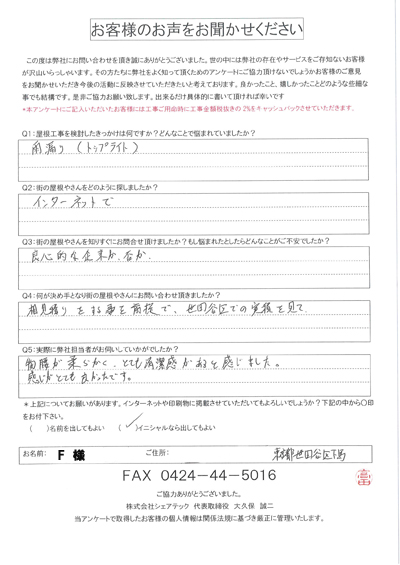 お客様のお声をお聞かせください
この度は弊社にお問い合わせを頂き誠にありがとうございました。世の中には弊社の存在やサービスをご存知ないお客様
が沢山いらっしゃいます。その方たちに弊社をよく知って頂くためのアンケートにご協力頂けないでしょうかお客様のご意見
をお聞かせいただき今後の活動に反映させていただきたいと考えております。良かったこと、嬉しかったことどのような些細な
事でも結構です。是非ご協力お願い致します。出来るだけ具体的に書いて頂ければ幸いです
*本アンケートにご記入いただいたお客様には工事ご用命時に工事金額税抜きの 2%をキャッシュバックさせていただきます.
Q1:屋根工事を検討したきっかけは何ですか?どんなことで悩まれていましたか?
雨漏り (トップライト)
Q2:街の屋根やさんをどのように探しましたか?
インターネットで
Q3:街の屋根やさんを知りすぐにお問合せ頂けましたか?もし悩まれたとしたらどんなことがご不安でしたか?
良心的な企業か、否か.
Q4:何が決め手となり街の屋根やさんにお問い合わせ頂きましたか?
相見積りをする事を前提で、世田谷区での実績を見て
Q5:実際に弊社担当者がお伺いしていかがでしたか?
物腰が柔らかく、とても清潔感があると感じました。
感じがとても良かったです。
* 上記についてお願いがあります。インターネットや印刷物に掲載させていただいてもよろしいでしょうか?下記の中から〇印
をお付下さい。
( )名前を出してもよい (✓)イニシャルなら出してもよい
お名前: F 様 ご住所: 東京都世田谷区下馬
FAX 0424-44-5016
ご協力ありがとうございました。
株式会社シェアテック 代表取締役 大久保 誠二
当アンケートで取得したお客様の個人情報は関係法規に基づき厳正に管理いたします。